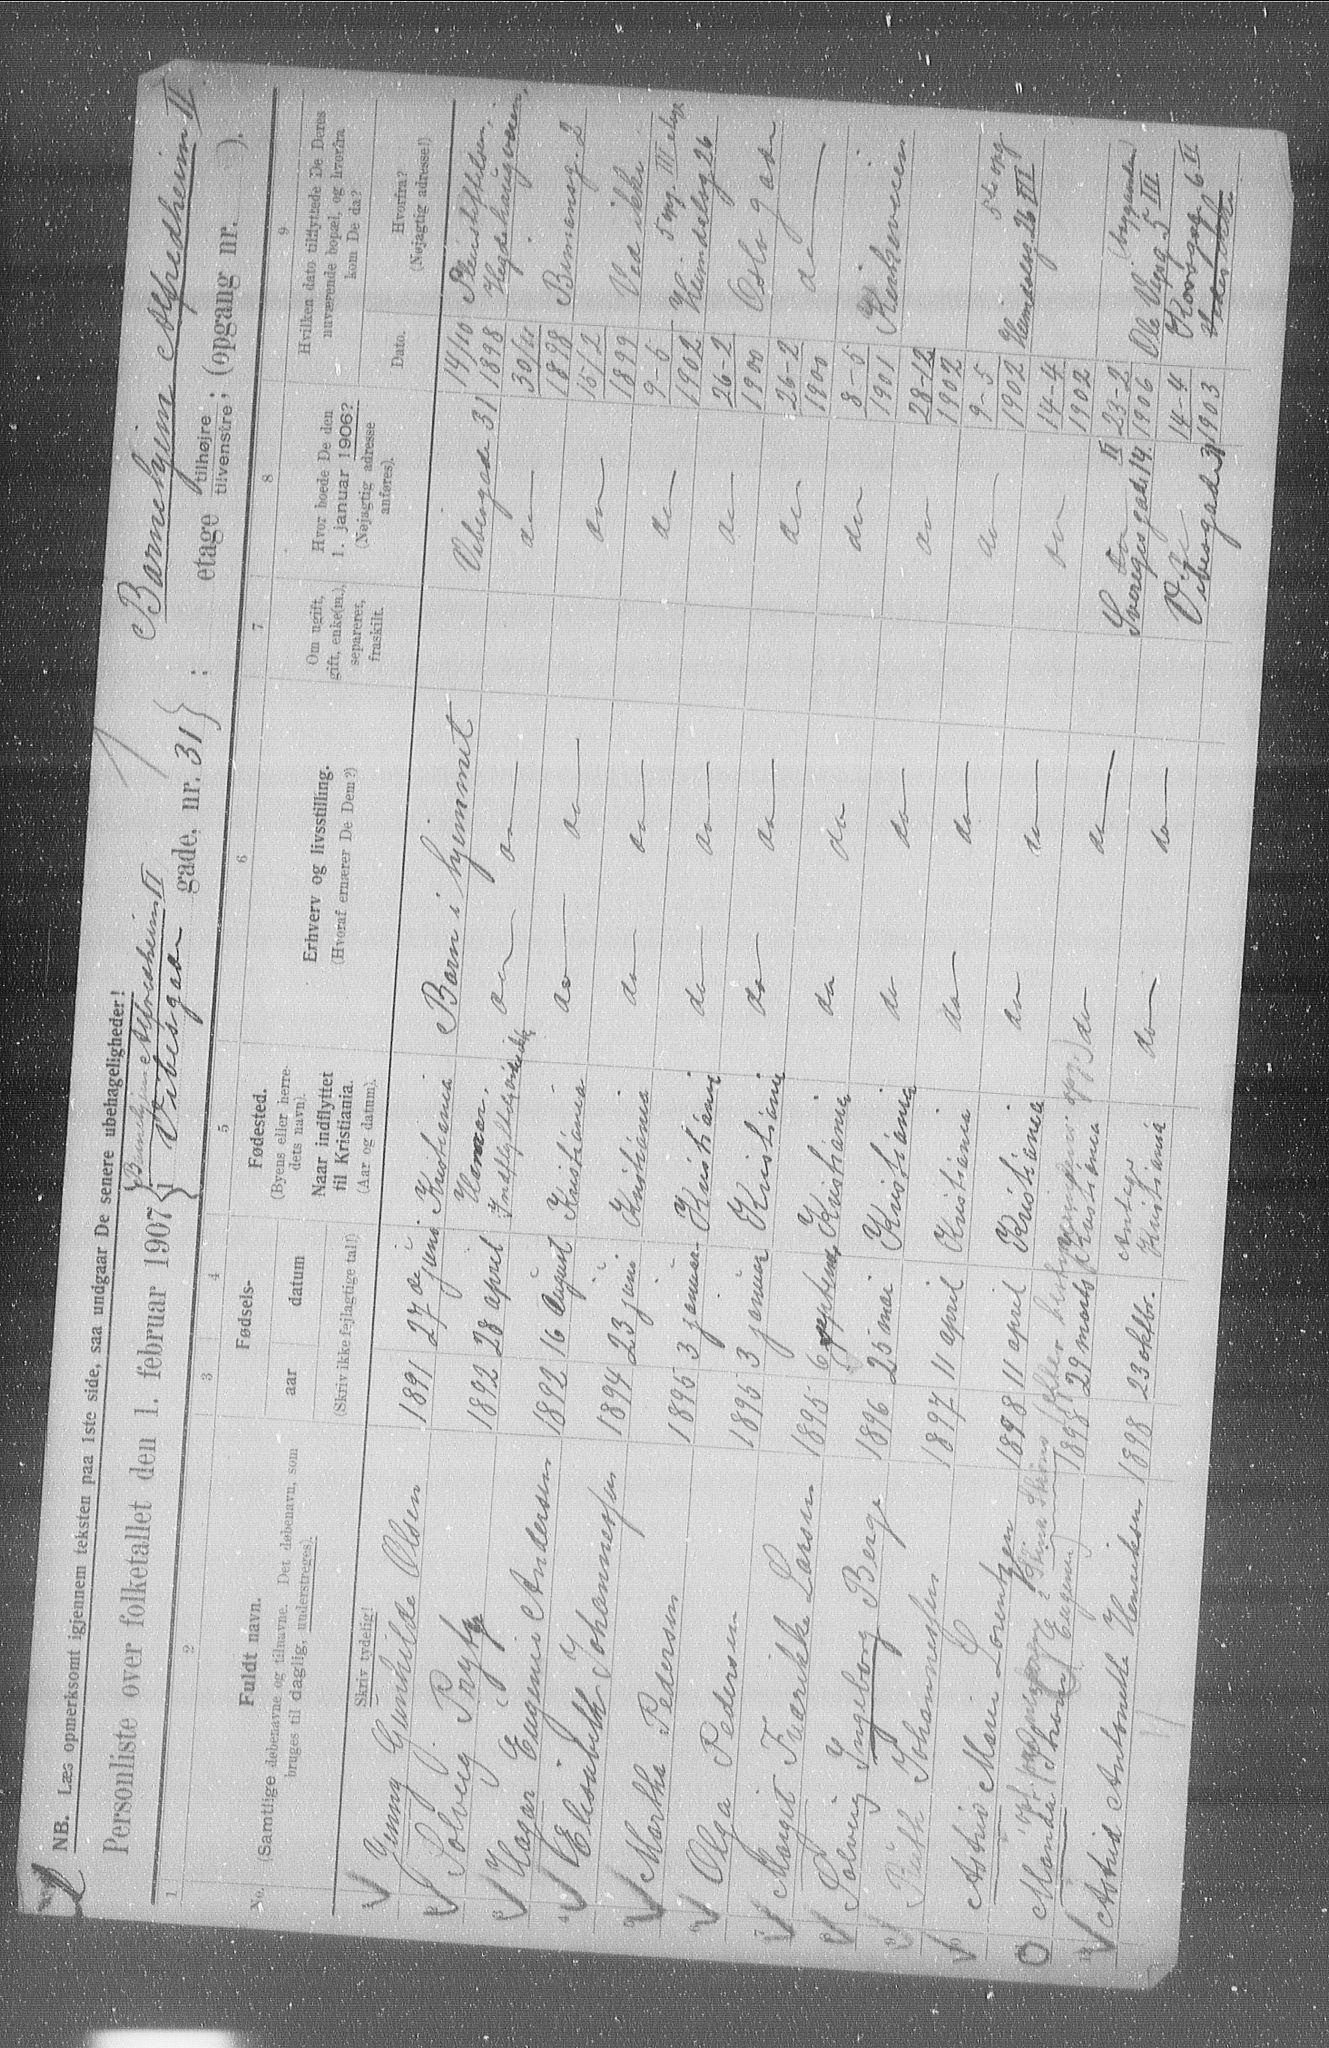 NB. Læs opmerksomt igjennem teksten paa 1ste side, saa undgaar De senere ubehageligheder!
Personliste over folketallet den 1. februar 1907 i
Barnehjem Alfredheim II
Vibesgade gade, nr. 31; Barnehjem Alfredheim II
etage tilhøjre tilvenstre; (opgang nr. ).
1 2 3 4 5 6 7 8 9
No.
Fuldt navn.
(Samtlige døbenavne og tilnavne. Det døbenavn, som
bruges til daglig, understreges).
Skriv tydelig!
Fødsels-
aar
datum
(Skriv ikke fejlagtige tal!)
Fødested.
(Byens eller herre-
dets navn).
Naar indflyttet
til Kristiania.
(Aar og datum).
Erhverv og livsstilling.
(Hvoraf ernærer De Dem?)
Om ugift,
gift, enke(m.),
separeret,
fraskilt.
Hvor boede De den
1. januar 1906?
(Nøjagtig adresse
anføres).
Hvilken dato tilflyttede De Deres
nuværende bopæl, og hvorfra
kom De da?
Dato.
Hvorfra?
(Nøjagtig adresse!)
Jenny Gunhilde Olsen 1891 27 de juni Kristiania Barn i hjemmet Vibesgade 31 14/10 1898
Hegdehaugveien
Solveig J. 1892 28 april Hamar. do do do 30/11 1898 Bennansg. 2
Hagar Eugenie Andersen 1892 16 August Kristiania do do do 15/2 1899 Ved ikke
Elisabeth Johannessen 1894 23 juni Kristiania do do do 9-5 1902 Heimdalsg 26 5 opg. III etage
Martha Pedersen 1895 3 januar Kristiania do do do 26-2 1900 Oslo gade
Olga Pedersen 1895 3 januar Kristiania do do do 26-2 1900 do
Margit Fredrikke Larsen 1895 6 septembr Kristiania do do do 8-5 1901 Kirkeveien
Solveig Ingeborg Berge 1896 25 mai Kristiania do do do 28-12 1902
Ruth Johannessen 1897 11 april Kristiania do do do 9-5 1902 Heimdalsg. 26 VI 5te opg
Astrid Marie Lorentzen 1898 11 april Kristiania do do do 14-4 1902
Manda (Thora Eugenie) 1898 29 marts Kristiania do do Sveriges gade 14. II 23-2 1906 Ole Vigsg 5 III (baggaarden)
Astrid Antonette Henriksen 1898 23 oktbr. Kristiania do do Vibesgade 31 14-4 1903 6 II